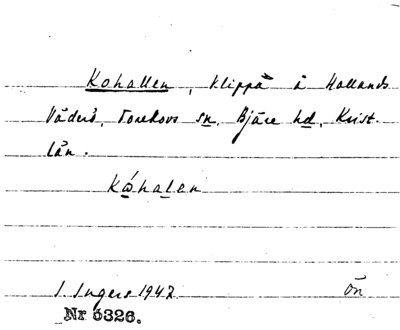 Kohallen, klippa å Hallands
Väderö, Torekovs sn, Bjäre hd, Krist.
län.
Kåhalen
I. Ingers 1942
ön
Nr 5326.